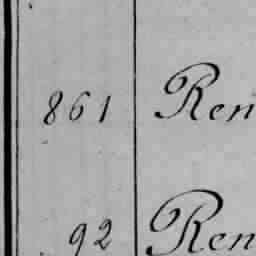 861 Ren
92 Ren